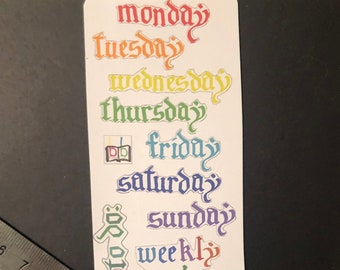 monday
tuesday
wednesday
thursday
friday
saturday
sunday
weekly
6
7